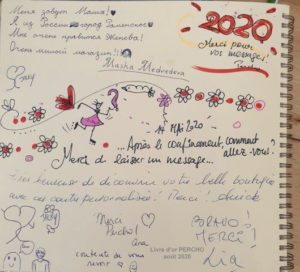 Меня зовут Маша!
Я из России город
Мне очень нравится Женева!
Очень милый магазин!!
Masha Medvedeva
2020
Merci pour
vos messages!
14 MAI 2020 -
...Après le confinement, comment
allez-vous?
Merci de laisser un message...
Très heureuse de découvrir votre belle boutique
avec ces contes personnalisés! Merci!
Merci
Percho!
BRAVO!
MERCI!
Lia
contente de vous
revoir
Livre d'or PERCHO
août 2020